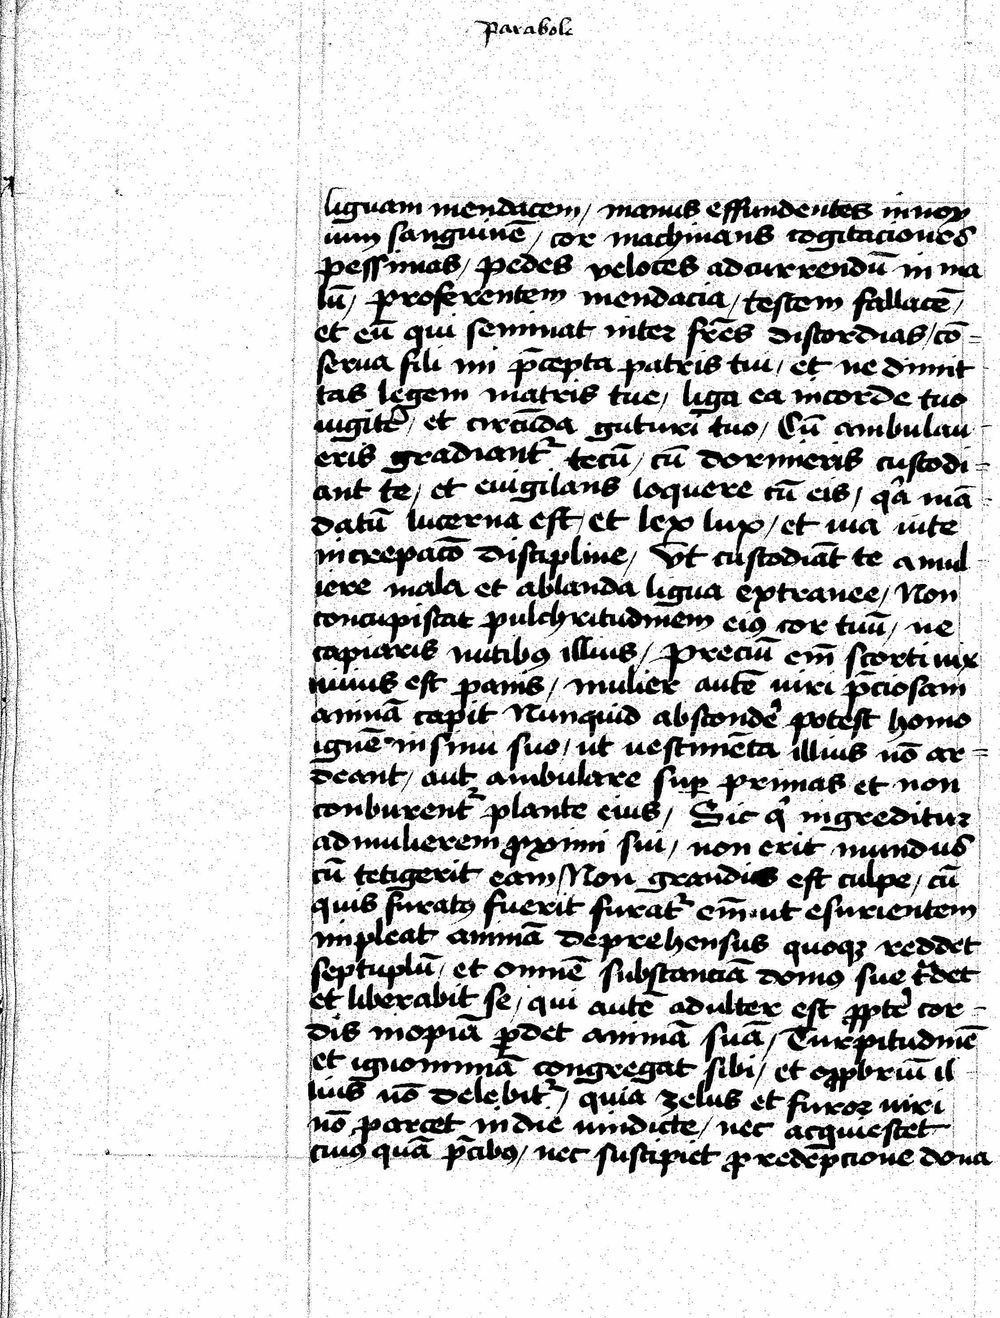 Parabole
liguam mendacem / manus effundentes innox
ium sanguinē / cor machinans cogitaciones
pessimas / pedes veloces adcurrendū in ma
lū / proferentem mendacia / testem fallacē /
et eū qui seminat inter fr̄es discordias / cō=
serua fili mi p̄cepta patris tui / et ne dimit
tas legem matris tue / liga ea incorde tuo
iugit̉ / et circūda guturi tuo / Cū ambulau
eris gradiantᷣ tecū / cū dormieris custodi=
ant te / et euigilans loquere cū eis / qa mā
datū lucerna est / et lex lux / et uia uite
increpacō discipline / Vt custodiāt te a mul
iere mala et ablanda ligua extranee / Non
concupiscat pulchritudinem eiꝰ cor tuū / ne
capiaris nutibꝰ illius / Preciū em̄ scorti uix
unius est panis / mulier autē uiri p̄ciosam
animā capit Nunquid abscondeᷣ potest homo
ignē in sinu suo / ut uestimēta illius nō ar=
deant / aut ambulare suꝑ prunas et non
conburentᷣ plante eius / Sic qi ingreditur
admulierem ꝓximi sui / non erit mundus
cū tetigerit eam / Non grandis est culpe / cū
quis furatꝰ fuerit furatᷣ em̄ ut esurientem
impleat animā deprehensus quoqꝫ reddet
septuplū / et omnē substanciā domꝰ sue tᷣdet
et liberabit se / qui autē adulter est ꝓpt̉ cor=
dis inopiā ꝑdet animā suā / Turpitudinē
et ignominiā congregat sibi / et oꝓbriū il
lius nō delebitᷣ / quia zelus et furor uiri
nō parcet indie uindicte / nec acquiescet
cuiꝰquā p̄cibꝰ / nec suscipiet ꝓ redēpcione dona